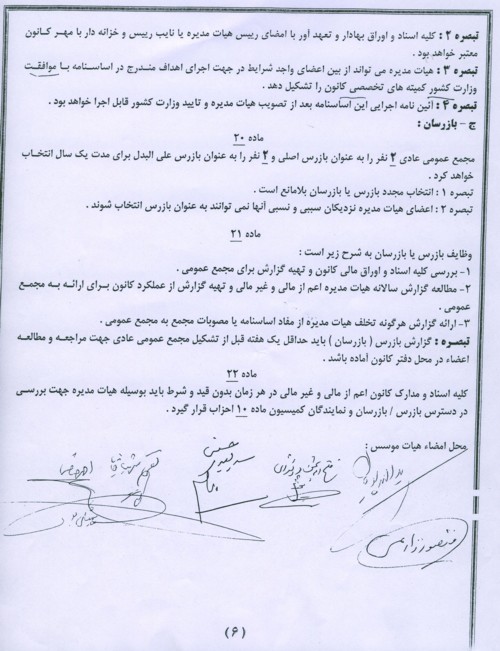 تبصره ۲ : کلیه اسناد و اوراق بهادار و تعهد آور با امضای رییس هیات مدیره یا نایب رییس و خزانه دار با مهر کانون
معتبر خواهد بود .
تبصره ۳ : هیات مدیره می تواند از بین اعضای واجد شرایط در جهت اجرای اهداف مندرج در اساسنامه با موافقت
وزارت کشور کمیته های تخصصی کانون را تشکیل دهد .
تبصره ۴ : آئین نامه اجرایی این اساسنامه بعد از تصویب هیات مدیره و تایید وزارت کشور قابل اجرا خواهد بود .
ج – بازرسان :
ماده ۲۰
مجمع عمومی عادی ۲ نفر را به عنوان بازرس اصلی و ۲ نفر را به عنوان بازرس علی البدل برای مدت یک سال انتخاب
خواهد کرد .
تبصره ۱ : انتخاب مجدد بازرس یا بازرسان بلامانع است .
تبصره ۲ : اعضای هیات مدیره نزدیکان سببی و نسبی آنها نمی توانند به عنوان بازرس انتخاب شوند .
ماده ۲۱
وظایف بازرس یا بازرسان به شرح زیر است :
۱- بررسی کلیه اسناد و اوراق مالی کانون و تهیه گزارش برای مجمع عمومی .
۲- مطالعه گزارش سالانه هیات مدیره اعم از مالی و غیر مالی و تهیه گزارش از عملکرد کانون برای ارائه به مجمع
عمومی .
۳- ارائه گزارش هرگونه تخلف هیات مدیره از مفاد اساسنامه یا مصوبات مجمع به مجمع عمومی .
تبصره : گزارش بازرس ( بازرسان ) باید حداقل یک هفته قبل از تشکیل مجمع عمومی عادی جهت مراجعه و مطالعه
اعضاء در محل دفتر کانون آماده باشد .
ماده ۲۲
کلیه اسناد و مدارک کانون اعم از مالی و غیر مالی در هر زمان بدون قید و شرط باید بوسیله هیات مدیره جهت بررسی
در دسترس بازرس / بازرسان و نمایندگان کمیسیون ماده ۱۰ احزاب قرار گیرد .
محل امضاء هیات موسس :
(۶)